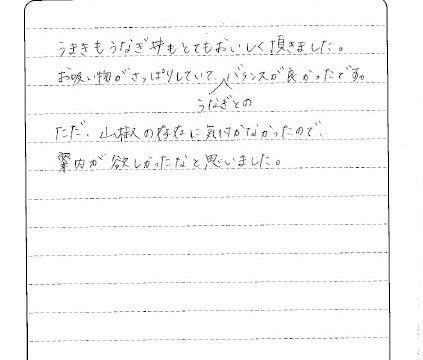 うまきもうなぎ丼もとてもおいしく頂きました。
お吸い物がさっぱりしていて、うなぎとのバランスが良かったです。
ただ、山椒の存在に気付かなかったので、
案内が欲しかったなと思いました。